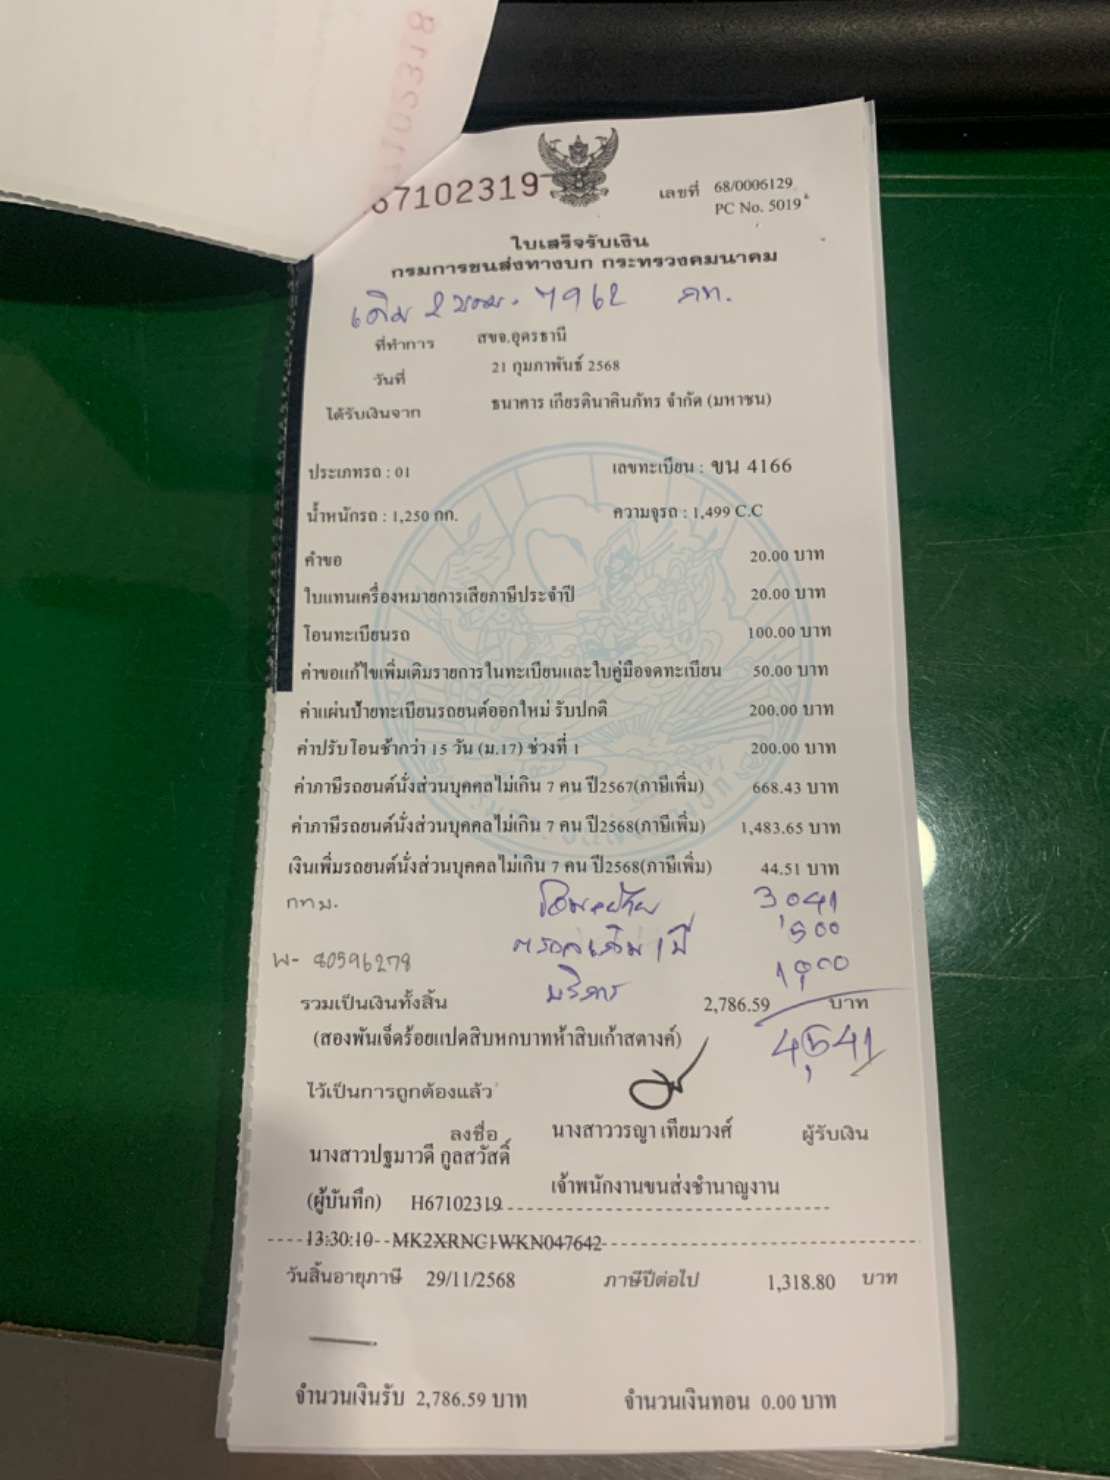 67102319
เลขที่ 68/0006129
PC No. 5019
ใบเสร็จรับเงิน
กรมการขนส่งทางบก กระทรวงคมนาคม
เดิม 2 7962 กท.
ที่ทำการ สขจ.อุดรธานี
วันที่ 21 กุมภาพันธ์ 2568
ได้รับเงินจาก ธนาคาร เกียรตินาคินภัทร จำกัด (มหาชน)
ประเภทรถ : 01 เลขทะเบียน : ขน 4166
น้ำหนักรถ : 1,250 กก. ความจุรถ : 1,499 C.C
คำขอ 20.00 บาท
ใบแทนเครื่องหมายการเสียภาษีประจำปี 20.00 บาท
โอนทะเบียนรถ 100.00 บาท
ค่าขอแก้ไขเพิ่มเติมรายการในทะเบียนและใบคู่มือจดทะเบียน 50.00 บาท
ค่าแผ่นป้ายทะเบียนรถยนต์ออกใหม่ รับปกติ 200.00 บาท
ค่าปรับโอนช้ากว่า 15 วัน (ม.17) ช่วงที่ 1 200.00 บาท
ค่าภาษีรถยนต์นั่งส่วนบุคคลไม่เกิน 7 คน ปี2567(ภาษีเพิ่ม) 668.43 บาท
ค่าภาษีรถยนต์นั่งส่วนบุคคลไม่เกิน 7 คน ปี2568(ภาษีเพิ่ม) 1,483.65 บาท
เงินเพิ่มรถยนต์นั่งส่วนบุคคลไม่เกิน 7 คน ปี2568(ภาษีเพิ่ม) 44.51 บาท
กทม. 3,041
500
W- 40596278
บริการ
รวมเป็นเงินทั้งสิ้น 2,786.59 บาท
(สองพันเจ็ดร้อยแปดสิบหกบาทห้าสิบเก้าสตางค์) 4,541
ไว้เป็นการถูกต้องแล้ว
ลงชื่อ นางสาววรญา เทียมวงศ์ ผู้รับเงิน
นางสาวปฐมาวดี กูลสวัสดิ์
(ผู้บันทึก) H67102319 เจ้าพนักงานขนส่งชำนาญงาน
13:30:10 MK2XRNC1WKN047642
วันสิ้นอายุภาษี 29/11/2568 ภาษีปีต่อไป 1,318.80 บาท
จำนวนเงินรับ 2,786.59 บาท จำนวนเงินทอน 0.00 บาท